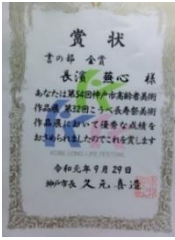 賞状
書の部 金賞
長濱 無心 様
あなたは第54回神戸市高齢者美術
作品展 第32回こうべ長寿祭美術
作品展において優秀な成績を
おさめられましたのでこれを賞します
KOBE LONG LIFE FESTIVAL
令和元年9月29日
神戸市長 久元喜造